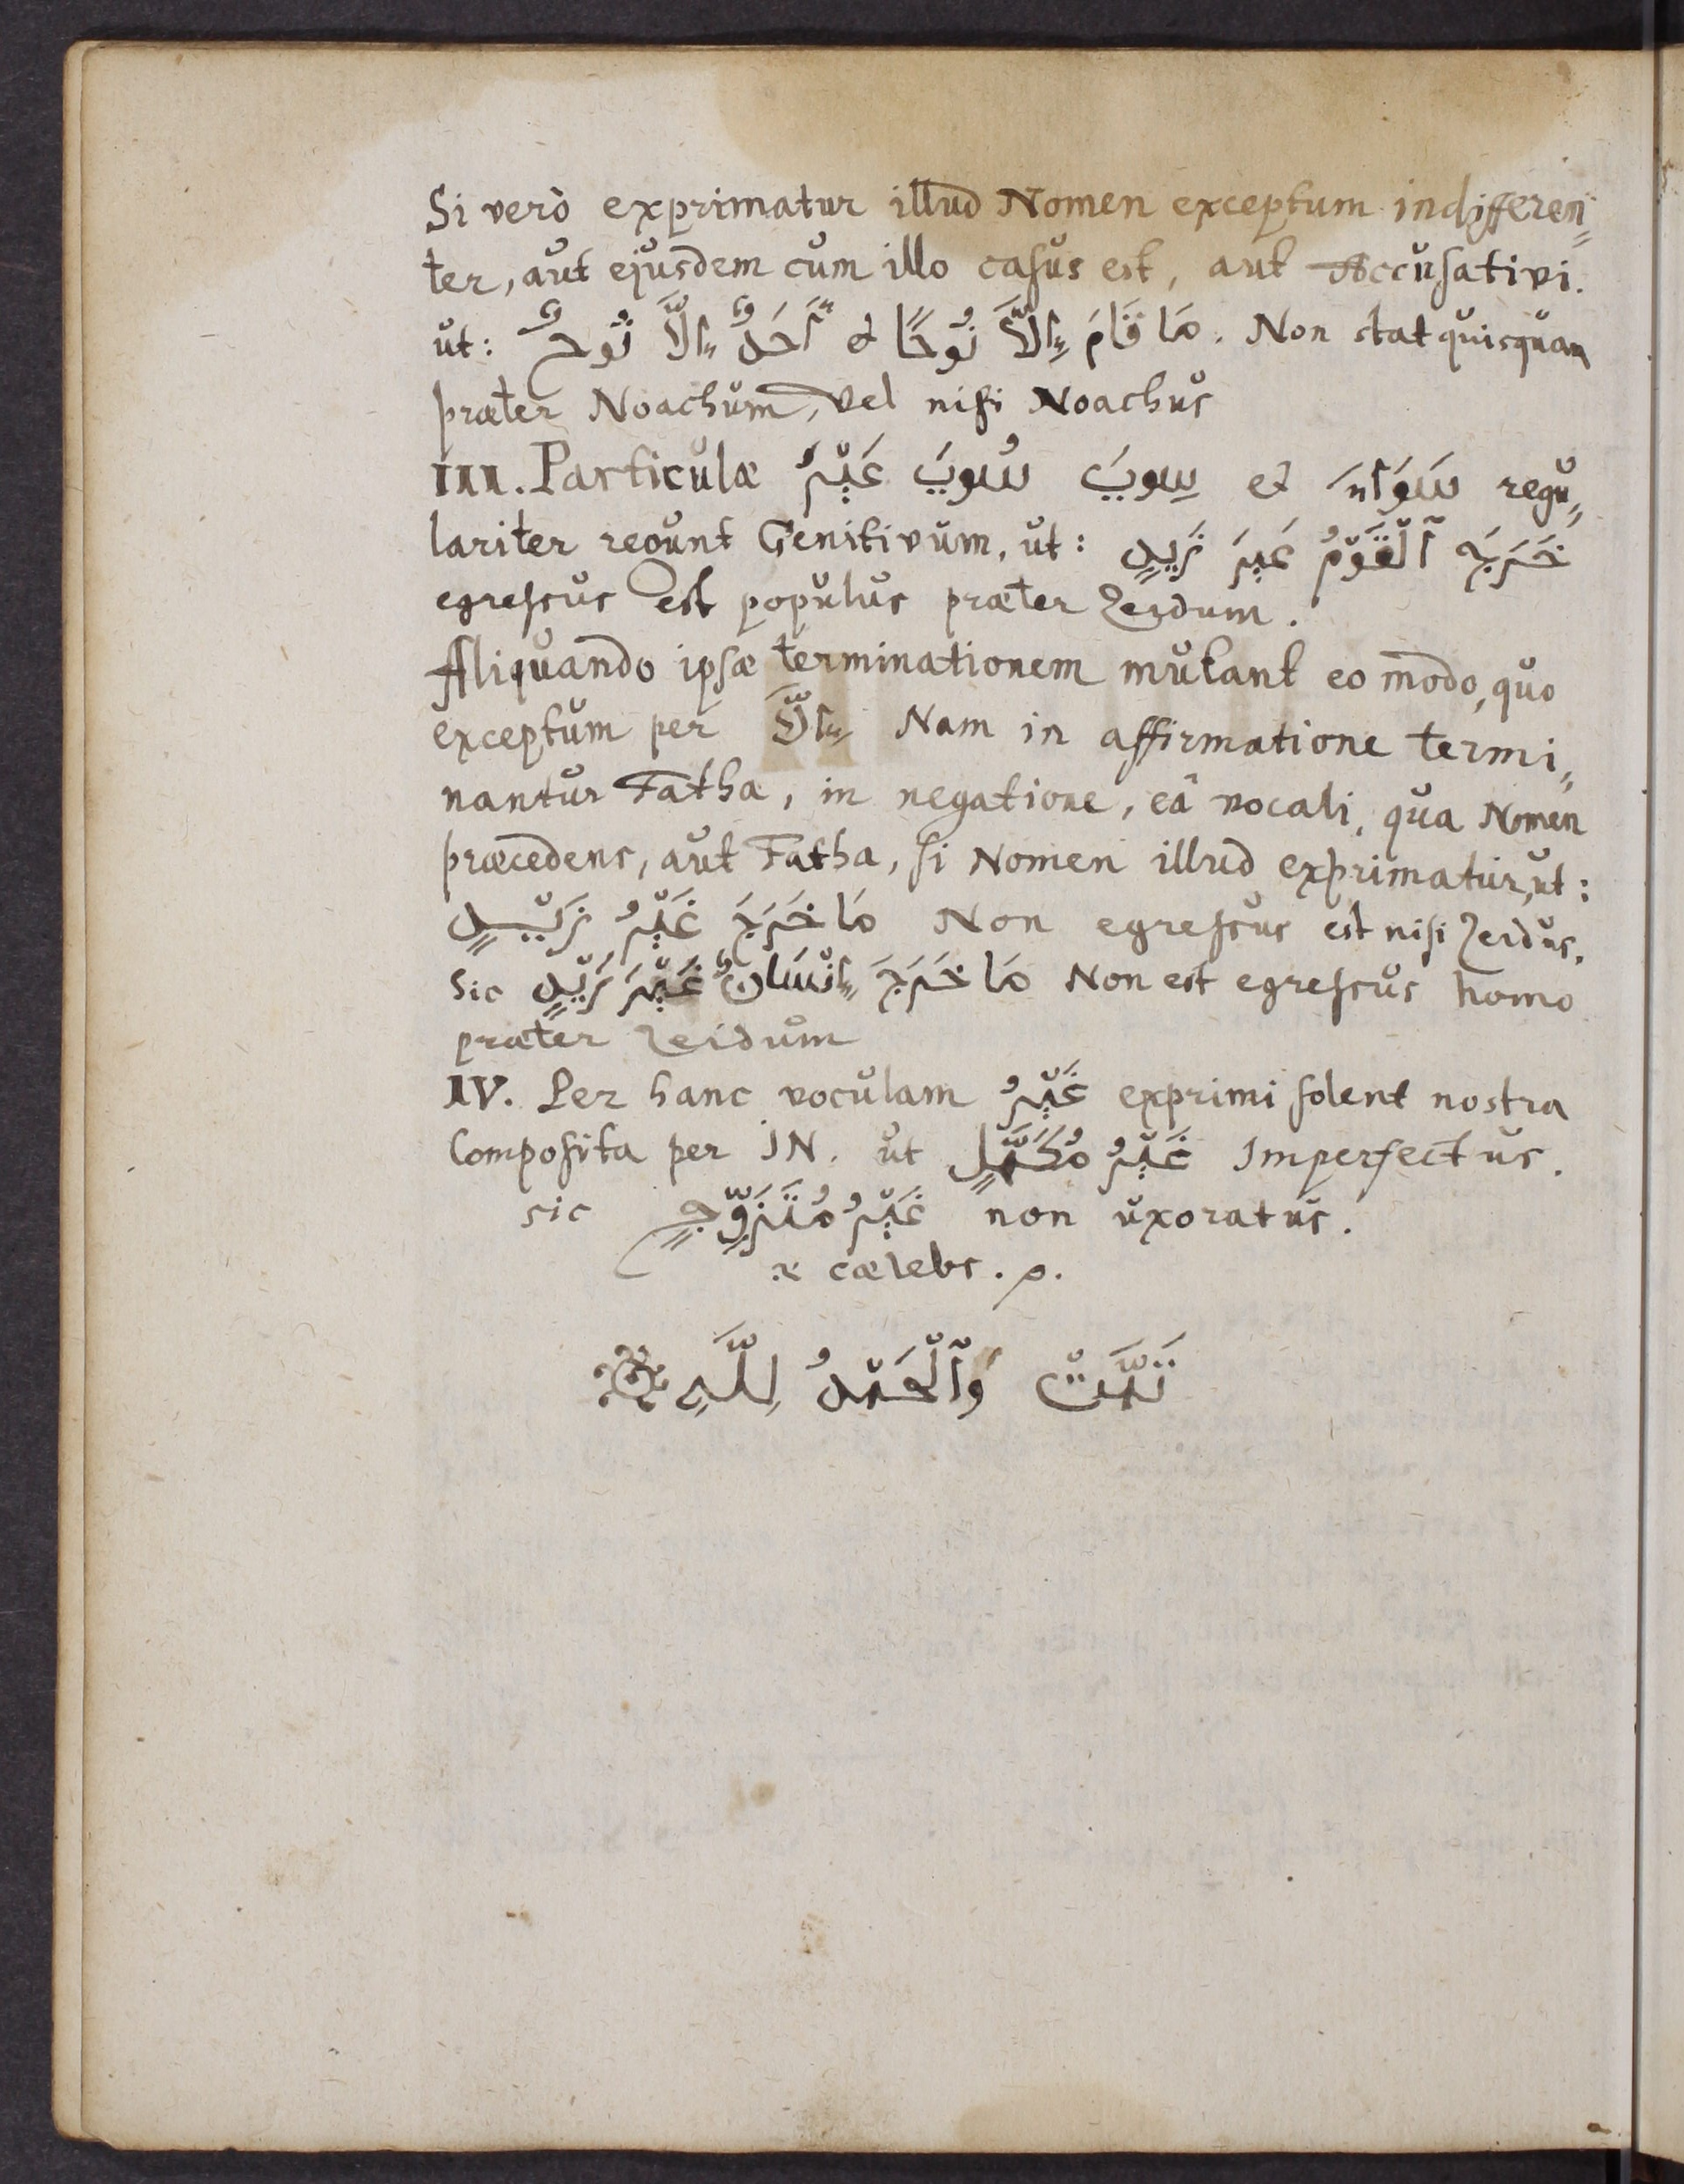 Si verò exprimatur illud Nomen exceptum indifferen=
ter, aut ejusdem cum illo casus est, aut Accusativi.
ut: مَا قَامَ إِلَّا نُوحًا & أَحَدٌ إِلَّا نُوحٌ. Non stat quisquam
præter Noachum, vel nisi Noachus
III. Particulæ غَيْرُ سُوىَ سِوىَ et سَوَآءَ regu=
lariter regunt Genitivum, ut: خَرَجَ ٱلْقَوْمُ غَيرَ زَيدٍ
egressus est populus præter Zeidum.
Aliquando ipsæ terminationem mutant eo modo, quo
exceptum per إِلَّا Nam in affirmatione termi=
nantur Fatha, in negatione, eâ vocali, qua Nomen
præcedens, aut Fatha, si Nomen illud exprimatur, ut:
مَا خَرَجَ غَيْرُ زَيْدٍ Non egressus est nisi Zeidus.
Sic مَا خَرَجَ إِنْسَانٌ غَيْرَ زَيْدٍ Non est egressus homo
præter Zeidum
IV. Per hanc voculam غَيْرُ exprimi solent nostra
Composita per IN. ut غَيْرُ مُكَمَّلٍ Imperfectus.
sic غَيْرُ مُتَزَوِّجٍ non uxoratus.
cælebs.
تَمَّتْ وَٱلْحَمْدُ لِلَّهِ